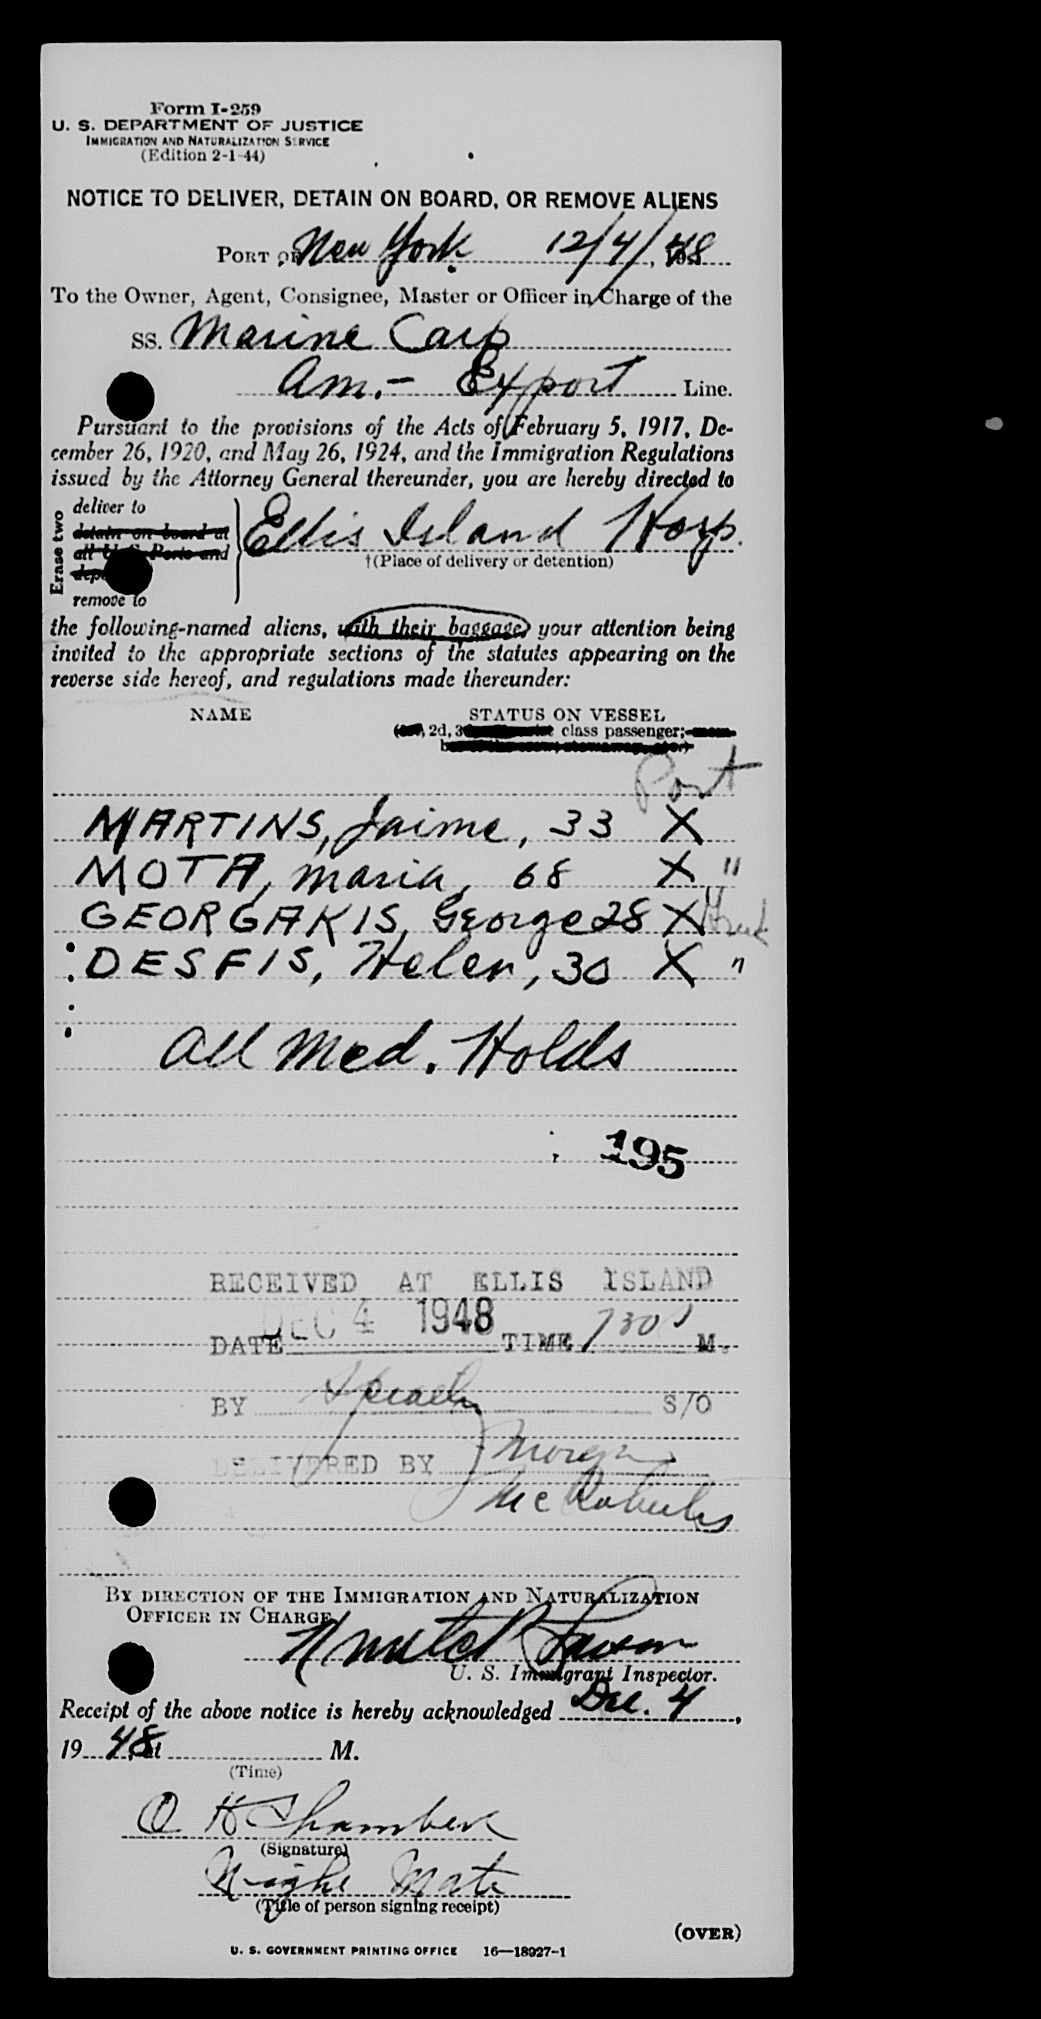 Form I-259
U. S. DEPARTMENT OF JUSTICE
IMMIGRATION AND NATURALIZATION SERVICE
(Edition 2-1-44)
NOTICE TO DELIVER, DETAIN ON BOARD, OR REMOVE ALIENS
PORT OF New York. 12/4/, 48
To the Owner, Agent, Consignee, Master or Officer in Charge of the
SS. Marine Carp
Am.- Export Line.
Pursuant to the provisions of the Acts of February 5, 1917, De-
cember 26, 1920, and May 26, 1924, and the Immigration Regulations
issued by the Attorney General thereunder, you are hereby directed to
Erase two
deliver to
detain on board at
all U. S. Ports and
remove to
Ellis Island Hosp.
†(Place of delivery or detention)
the following-named aliens, with their baggage, your attention being
invited to the appropriate sections of the statutes appearing on the
reverse side hereof, and regulations made thereunder:
NAME STATUS ON VESSEL
2d, class passenger;
Port
MARTINS, Jaime, 33 X
MOTA, Maria, 68 X "
GEORGAKIS, George 28 X Greek
DESFIS, Helen, 30 X "
All Med. Holds
195
RECEIVED AT ELLIS ISLAND
DATE DEC 4 1948 TIME 730 P M.
BY S/O
DELIVERED BY Morgan
McRoberts
BY DIRECTION OF THE IMMIGRATION AND NATURALIZATION
OFFICER IN CHARGE
U. S. Immigrant Inspector.
Receipt of the above notice is hereby acknowledged Dec. 4,
19 48, at M.
(Time)
O H Chambers
(Signature)
Night Mate
(Title of person signing receipt)
(OVER)
U. S. GOVERNMENT PRINTING OFFICE 16—18927-1